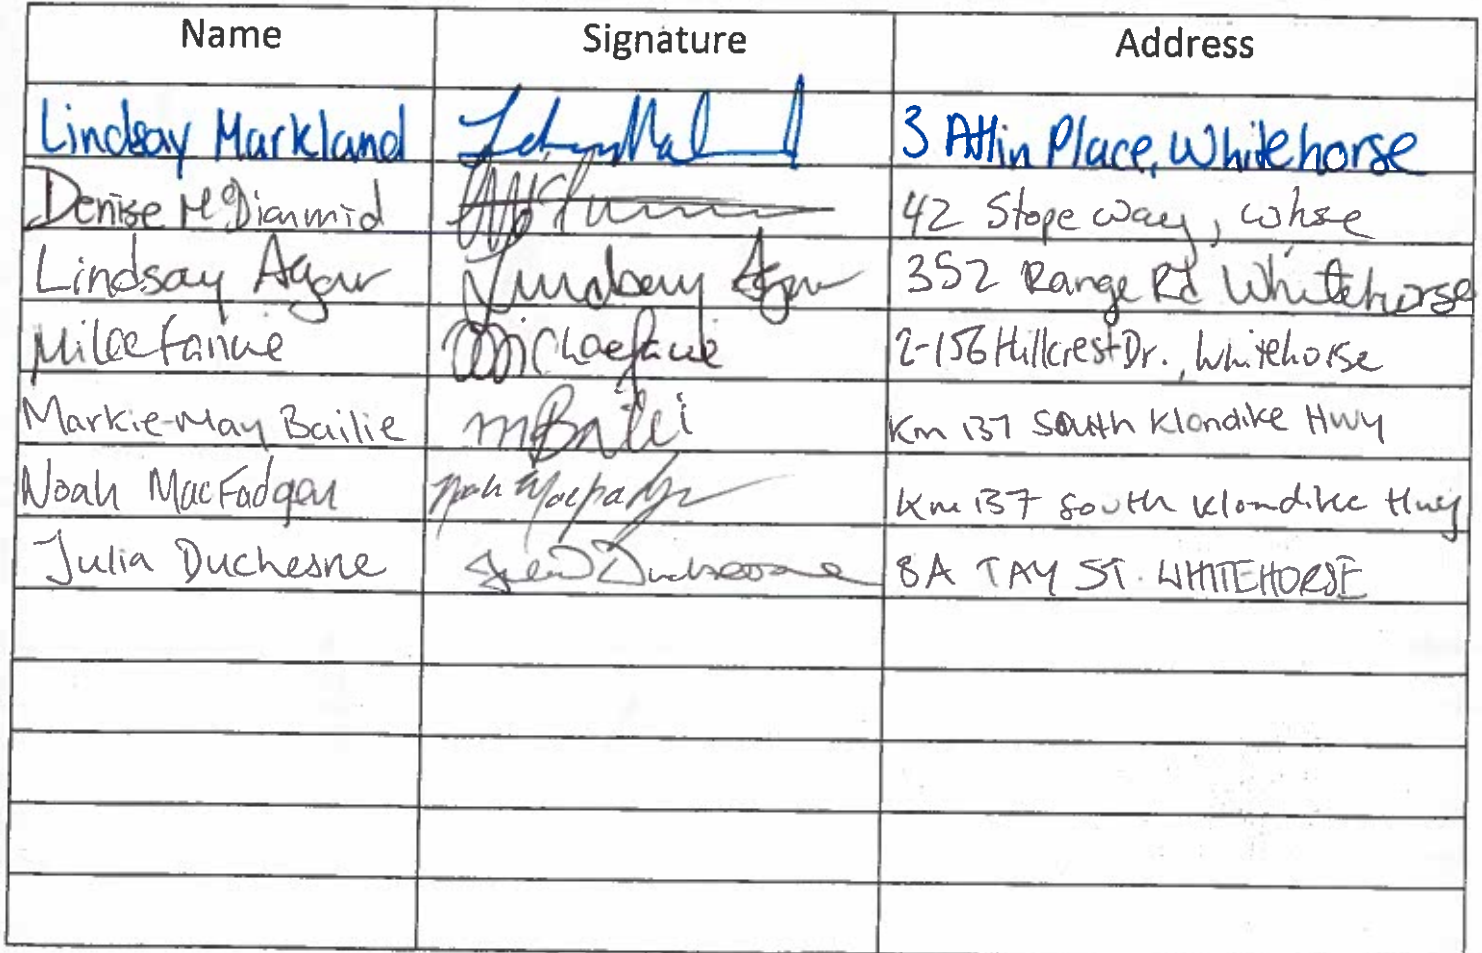 Name Signature Address
Lindsay Markland 3 Atlin Place, Whitehorse
Denise McDiarmid 42 Stope Way, Whse
Lindsay Agar Lindsay Agar 352 Range Rd Whitehorse
2-156 Hillcrest Dr., Whitehorse
Markie-May Bailie Km 137 South Klondike Hwy
Noah MacFadgen Noah Km 137 South Klondike Hwy
Julia Duchesne Julia Duchesne 8A TAY ST. WHITEHORSE